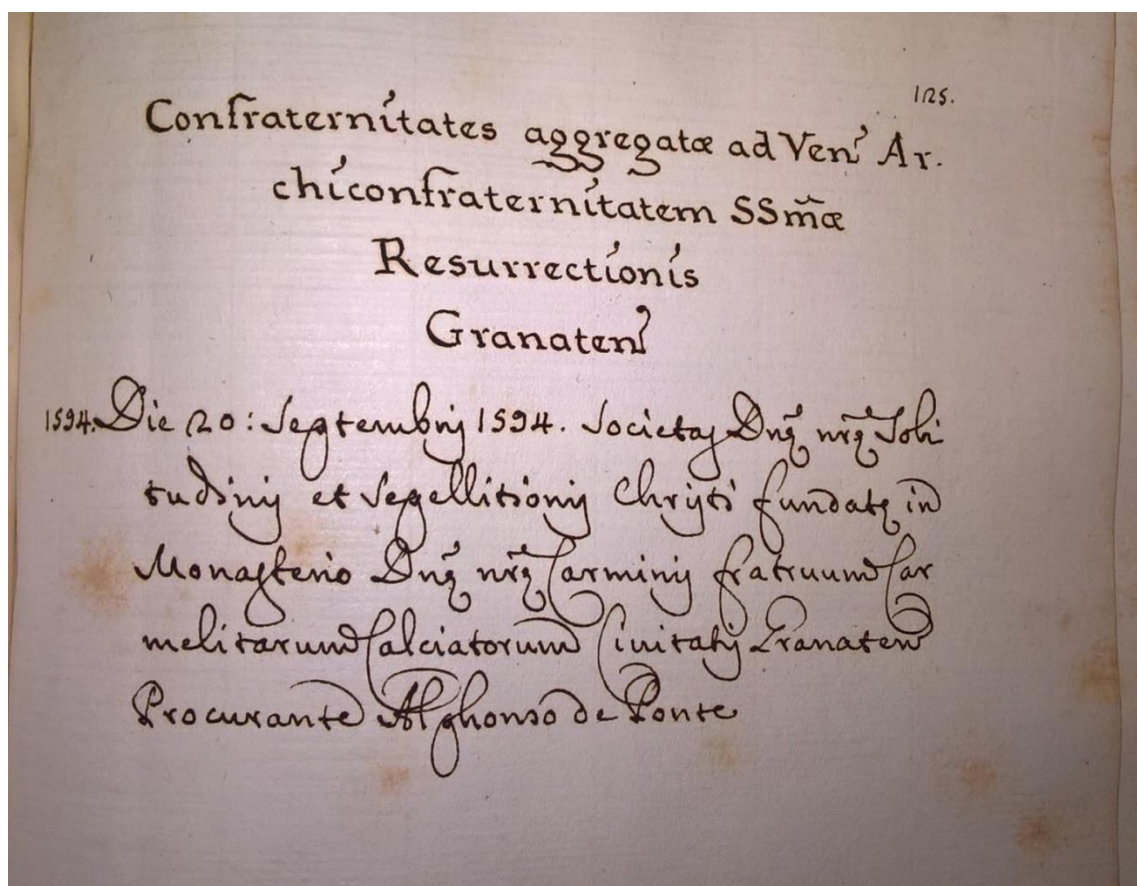 125.
Confraternitates aggregatæ ad Ven' Ar.
chiconfraternitatem SSm̃æ
Resurrectionis
Granaten'
1594. Die 20: Septembrij 1594. Societas Dnę nrę Soli
tudinis et Sepellitionis Christi fundatę in
Monasterio Dnę nrę Carminis fratruum Car
melitarum Calciatorum Civitatis Granaten
Procurante Alphonso de Ponte